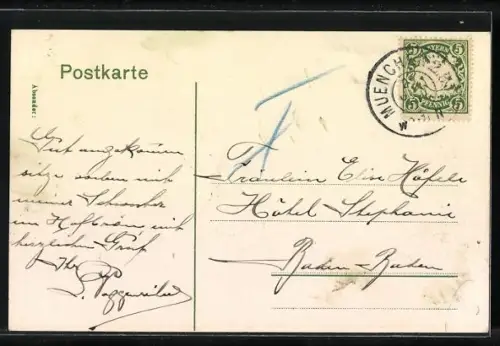 Postkarte
Absender:
Gut angekommen
sitze soeben mit
meiner Schwester
im Hofbräu, mit
herzlichem Gruß
Ihr
Fräulein Elise Häfele
Hôtel Stephanie
Baden-Baden
MUENCHEN
BAYERN
5 5
PFENNIG
5 5